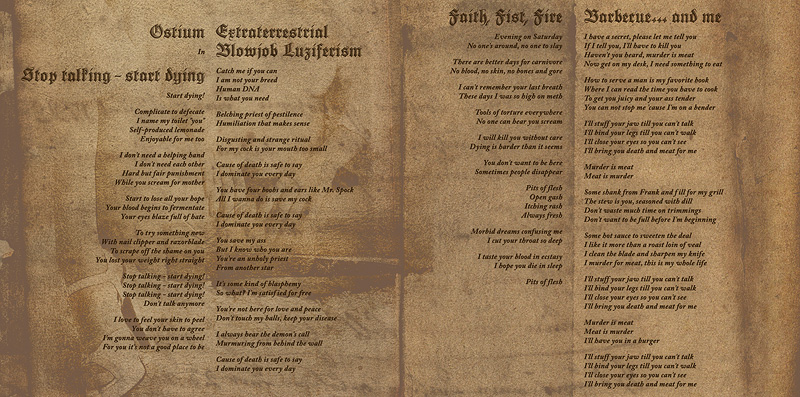 Ostium
In
Stop talking - start dying
Start dying!
Complicate to defecate
I name my toilet "you"
Self-produced lemonade
Enjoyable for me too
I don't need a helping hand
I don't need each other
Hard but fair punishment
While you scream for mother
Start to lose all your hope
Your blood begins to fermentate
Your eyes blaze full of hate
To try something new
With nail clipper and razorblade
To scrape off the shame on you
You lost your weight right straight
Stop talking - start dying!
Stop talking - start dying!
Stop talking - start dying!
Don't talk anymore
I love to feel your skin to peel
You don't have to agree
I'm gonna weave you on a wheel
For you it's not a good place to be
Extraterrestrial
Blowjob Luziferism
Catch me if you can
I am not your breed
Human DNA
Is what you need
Belching priest of pestilence
Humiliation that makes sense
Disgusting and strange ritual
For my cock is your mouth too small
Cause of death is safe to say
I dominate you every day
You have four boobs and ears like Mr. Spock
All I wanna do is save my cock
Cause of death is safe to say
I dominate you every day
You save my ass
But I know who you are
You're an unholy priest
From another star
It's some kind of blasphemy
So what? I'm satisfied for free
You're not here for love and peace
Don't touch my balls, keep your disease
I always hear the demon's call
Murmuring from behind the wall
Cause of death is safe to say
I dominate you every day
Faith, Fist, Fire
Evening on Saturday
No one's around, no one to slay
There are better days for carnivore
No blood, no skin, no bones and gore
I can't remember your last breath
These days I was so high on meth
Tools of torture everywhere
No one can hear you scream
I will kill you without care
Dying is harder than it seems
You don't want to be here
Sometimes people disappear
Pits of flesh
Open gash
Itching rash
Always fresh
Morbid dreams confusing me
I cut your throat so deep
I taste your blood in ecstasy
I hope you die in sleep
Pits of flesh
Barbecue... and me
I have a secret, please let me tell you
If I tell you, I'll have to kill you
Haven't you heard, murder is meat
Now get on my desk, I need something to eat
How to serve a man is my favorite book
Where I can read the time you have to cook
To get you juicy and your ass tender
You can not stop me 'cause I'm on a bender
I'll stuff your jaw till you can't talk
I'll bind your legs till you can't walk
I'll close your eyes so you can't see
I'll bring you death and meat for me
Murder is meat
Meat is murder
Some shank from Frank and fill for my grill
The stew is you, seasoned with dill
Don't waste much time on trimmings
Don't want to be full before I'm beginning
Some hot sauce to sweeten the deal
I like it more than a roast loin of veal
I clean the blade and sharpen my knife
I murder for meat, this is my whole life
I'll stuff your jaw till you can't talk
I'll bind your legs till you can't walk
I'll close your eyes so you can't see
I'll bring you death and meat for me
Murder is meat
Meat is murder
I'll have you in a burger
I'll stuff your jaw till you can't talk
I'll bind your legs till you can't walk
I'll close your eyes so you can't see
I'll bring you death and meat for me